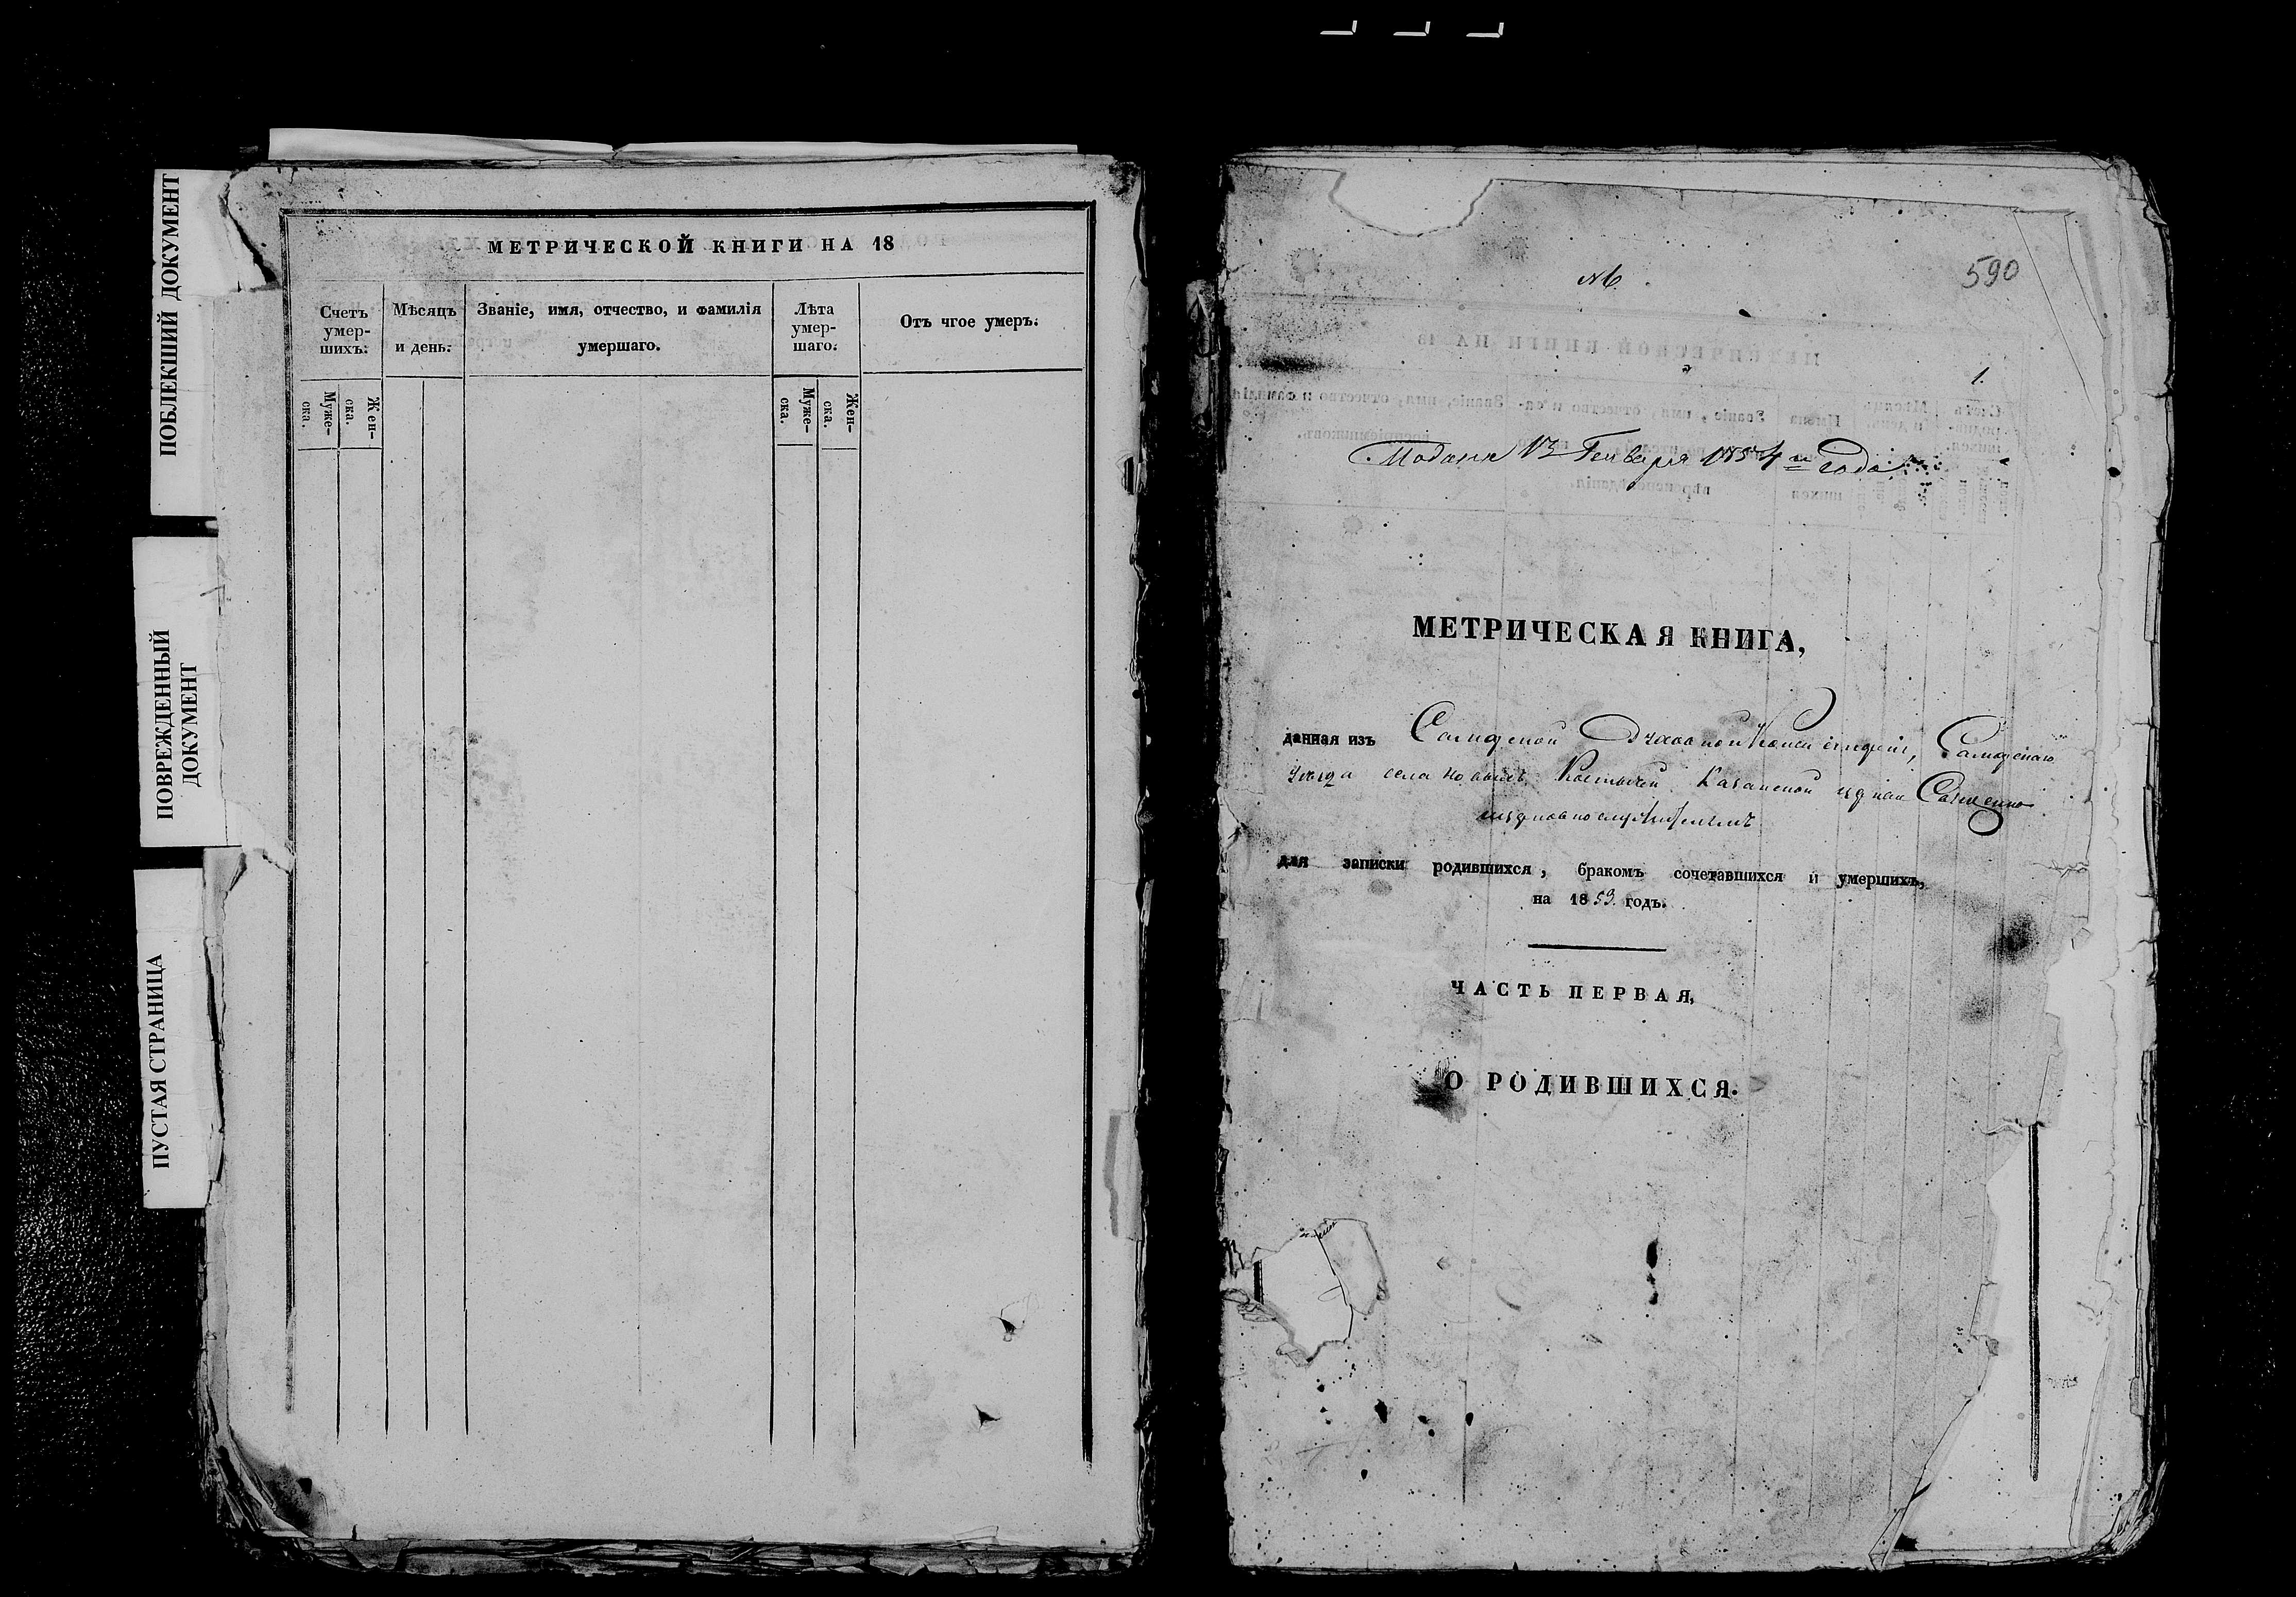 ПОБЛЕКШИЙ ДОКУМЕНТ
ПОВРЕЖДЕННЫЙ
ДОКУМЕНТ
ПУСТАЯ СТРАНИЦА
МЕТРИЧЕСКОЙ КНИГИ НА 18
Счетъ умер- шихъ.
Мѣсяцъ и день.
Званіе, имя, отчество, и фамилія умершаго.
Лѣта умер- шаго.
Отъ чгое умеръ.
Муже- ска.
Жен- ска.
Муже- ска.
Жен- ска.
№
590
1.
Подана 13 Генваря 1854 го года
МЕТРИЧЕСКАЯ КНИГА,
данная изъ Самарской Духовной Консисторіи, Самарскаго
уѣзда села Новыхъ Костычей Казанской церкви Священно
церковнослужителямъ
для записки родившихся, бракомъ сочетавшихся и умершихъ,
на 1853 годъ.
ЧАСТЬ ПЕРВАЯ,
О РОДИВШИХСЯ.